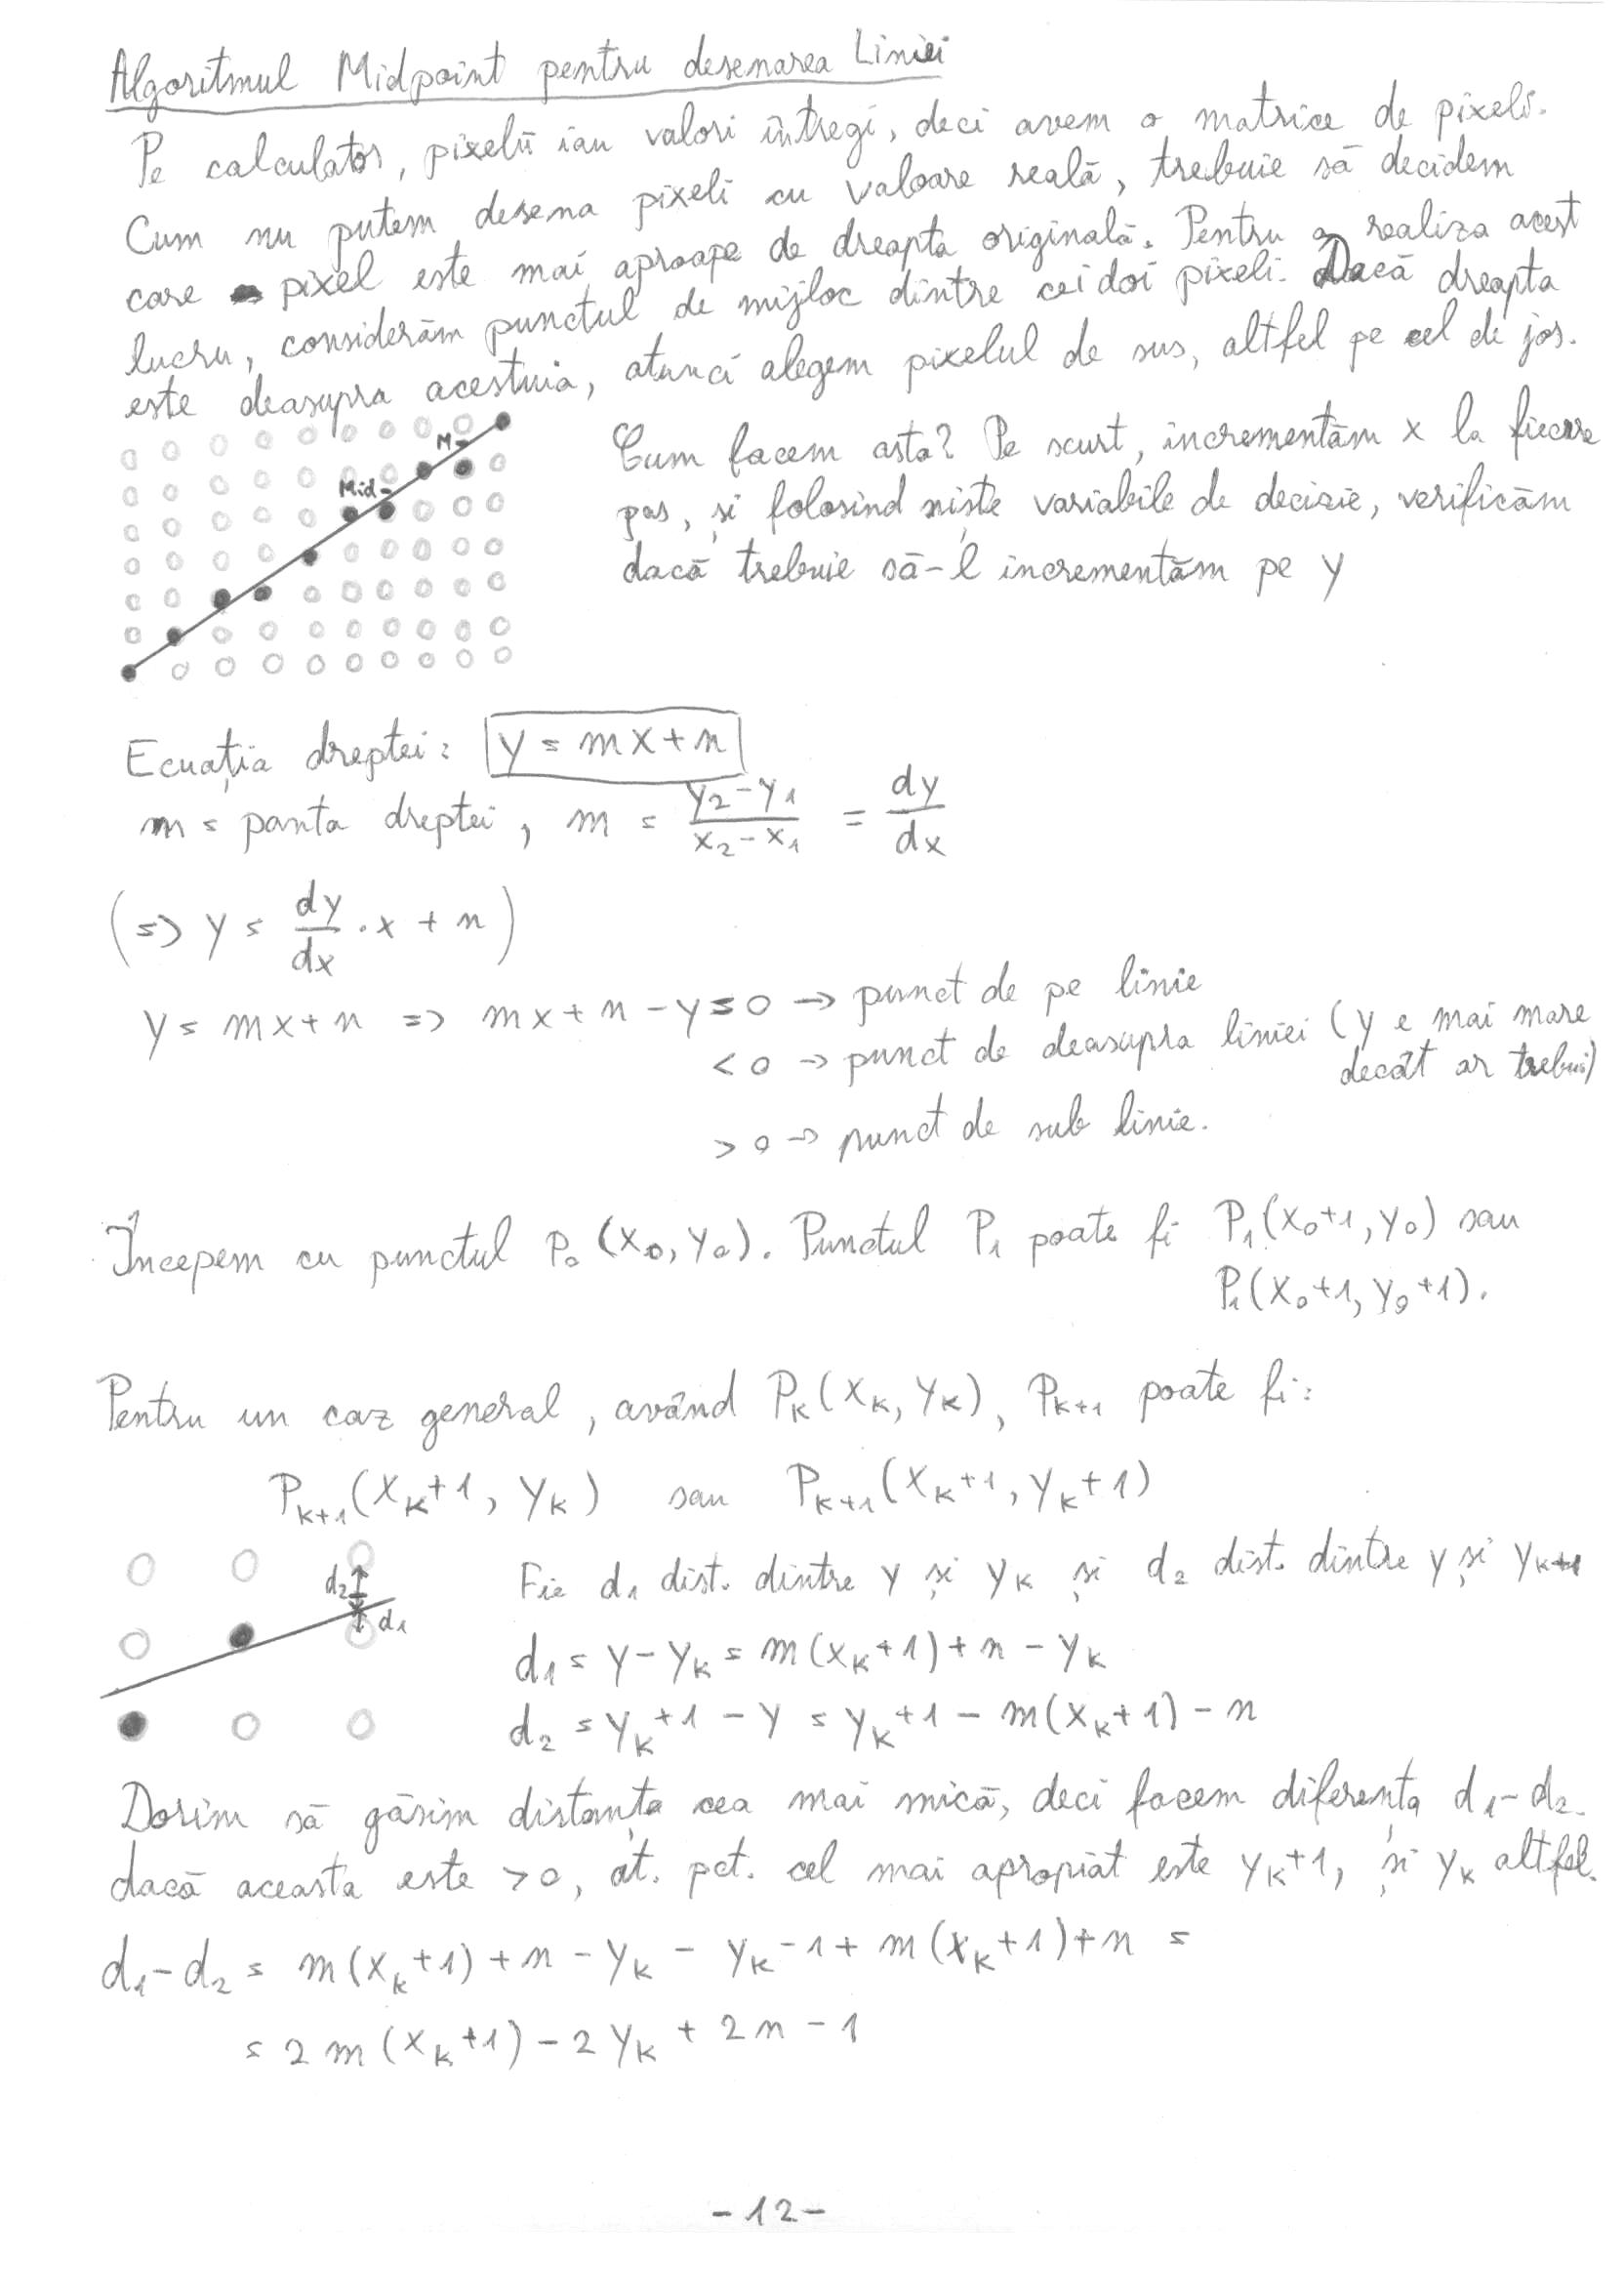 Algoritmul Midpoint pentru desenarea Liniei
Pe calculator, pixelii iau valori întregi, deci avem o matrice de pixeli.
Cum nu putem desena pixeli cu valoare reală, trebuie să decidem
care pixel este mai aproape de dreapta originală. Pentru a realiza acest
lucru, considerăm punctul de mijloc dintre cei doi pixeli. Dacă dreapta
este deasupra acestuia, atunci alegem pixelul de sus, altfel pe cel de jos.
M
Mid
Cum facem asta? Pe scurt, incrementăm x la fiecare
pas, și folosind niște variabile de decizie, verificăm
dacă trebuie să-l incrementăm pe y
Ecuația dreptei: y = mx+n
m = panta dreptei, m = \frac{y_2-y_1}{x_2-x_1} = \frac{dy}{dx}
(=> y = \frac{dy}{dx} · x + n)
y = mx+n => mx+n-y = 0 → punct de pe linie
< 0 → punct de deasupra liniei (y e mai mare
decât ar trebui)
> 0 → punct de sub linie.
Începem cu punctul P₀(x₀, y₀). Punctul P₁ poate fi P₁(x₀+1, y₀) sau
P₁(x₀+1, y₀+1).
Pentru un caz general, având Pₖ(xₖ, yₖ), Pₖ₊₁ poate fi:
Pₖ₊₁(xₖ+1, yₖ) sau Pₖ₊₁(xₖ+1, yₖ+1)
d₂
d₁
Fie d₁ dist. dintre y și yₖ și d₂ dist. dintre y și yₖ₊₁
d₁ = y-yₖ = m(xₖ+1)+n-yₖ
d₂ = yₖ+1-y = yₖ+1-m(xₖ+1)-n
Dorim să găsim distanța cea mai mică, deci facem diferența d₁-d₂.
dacă aceasta este >0, at. pct. cel mai apropiat este yₖ+1, și yₖ altfel.
d₁-d₂ = m(xₖ+1)+n-yₖ-yₖ-1+m(xₖ+1)+n =
= 2m(xₖ+1)-2yₖ+2n-1
-12-